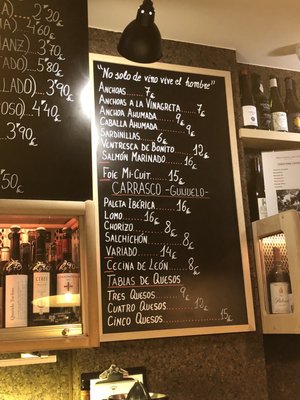 2'20€
4'60€
3'70€
5'80€
4'40€
3'90€
'50€
"No solo de vino vive el hombre"
Anchoas 7€
Anchoas a la Vinagreta 7€
Anchoa Ahumada 9€
Caballa Ahumada 9€
Sardinillas 6€
Ventresca de Bonito 12€
Salmón Marinado 16€
Foie Mi-Cuit 15€
CARRASCO - Guijuelo -
Paleta Ibérica 16€
Lomo 16€
Chorizo 8€
Salchichón 8€
Variado 14€
Cecina de León 8€
Tablas de Quesos
Tres Quesos 9€
Cuatro Quesos 12€
Cinco Quesos 15€